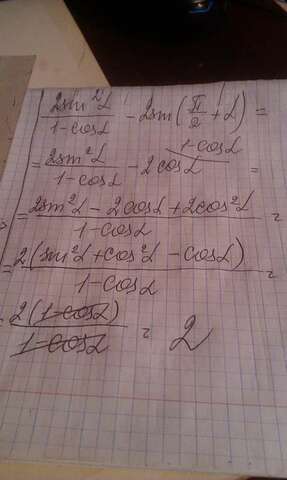 2sin²α/(1-cosα) - 2sin(π/2 + α) =
= 2sin²α/(1-cosα) - 2cosα (1-cosα =
= (2sin²α - 2cosα + 2cos²α)/(1-cosα) =
= 2(sin²α + cos²α - cosα)/(1-cosα) =
2(1-cosα)/(1-cosα) = 2